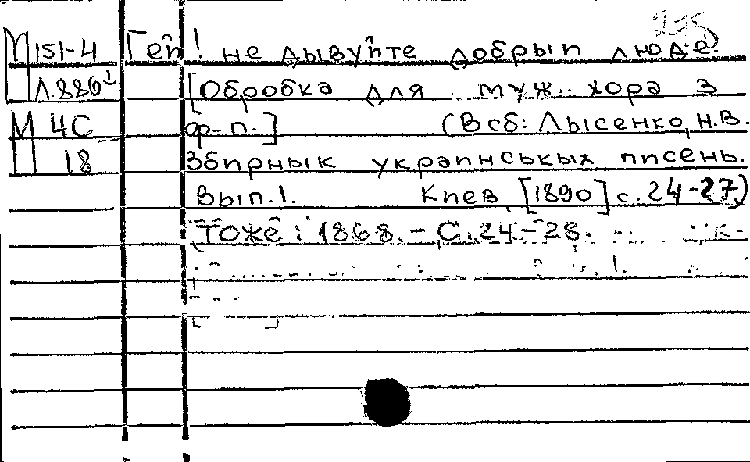 М 151-4 Гей! не дывуйте добрыи люде
Л.886² [Обробка для муж. хора з
М 4С ф-п.] (В сб: Лысенко, Н.В.
18 Збирнык украинськых писень.
Вып.1. Киев, [1890] с.24-27)
Тоже: 1868. - С.24-28.